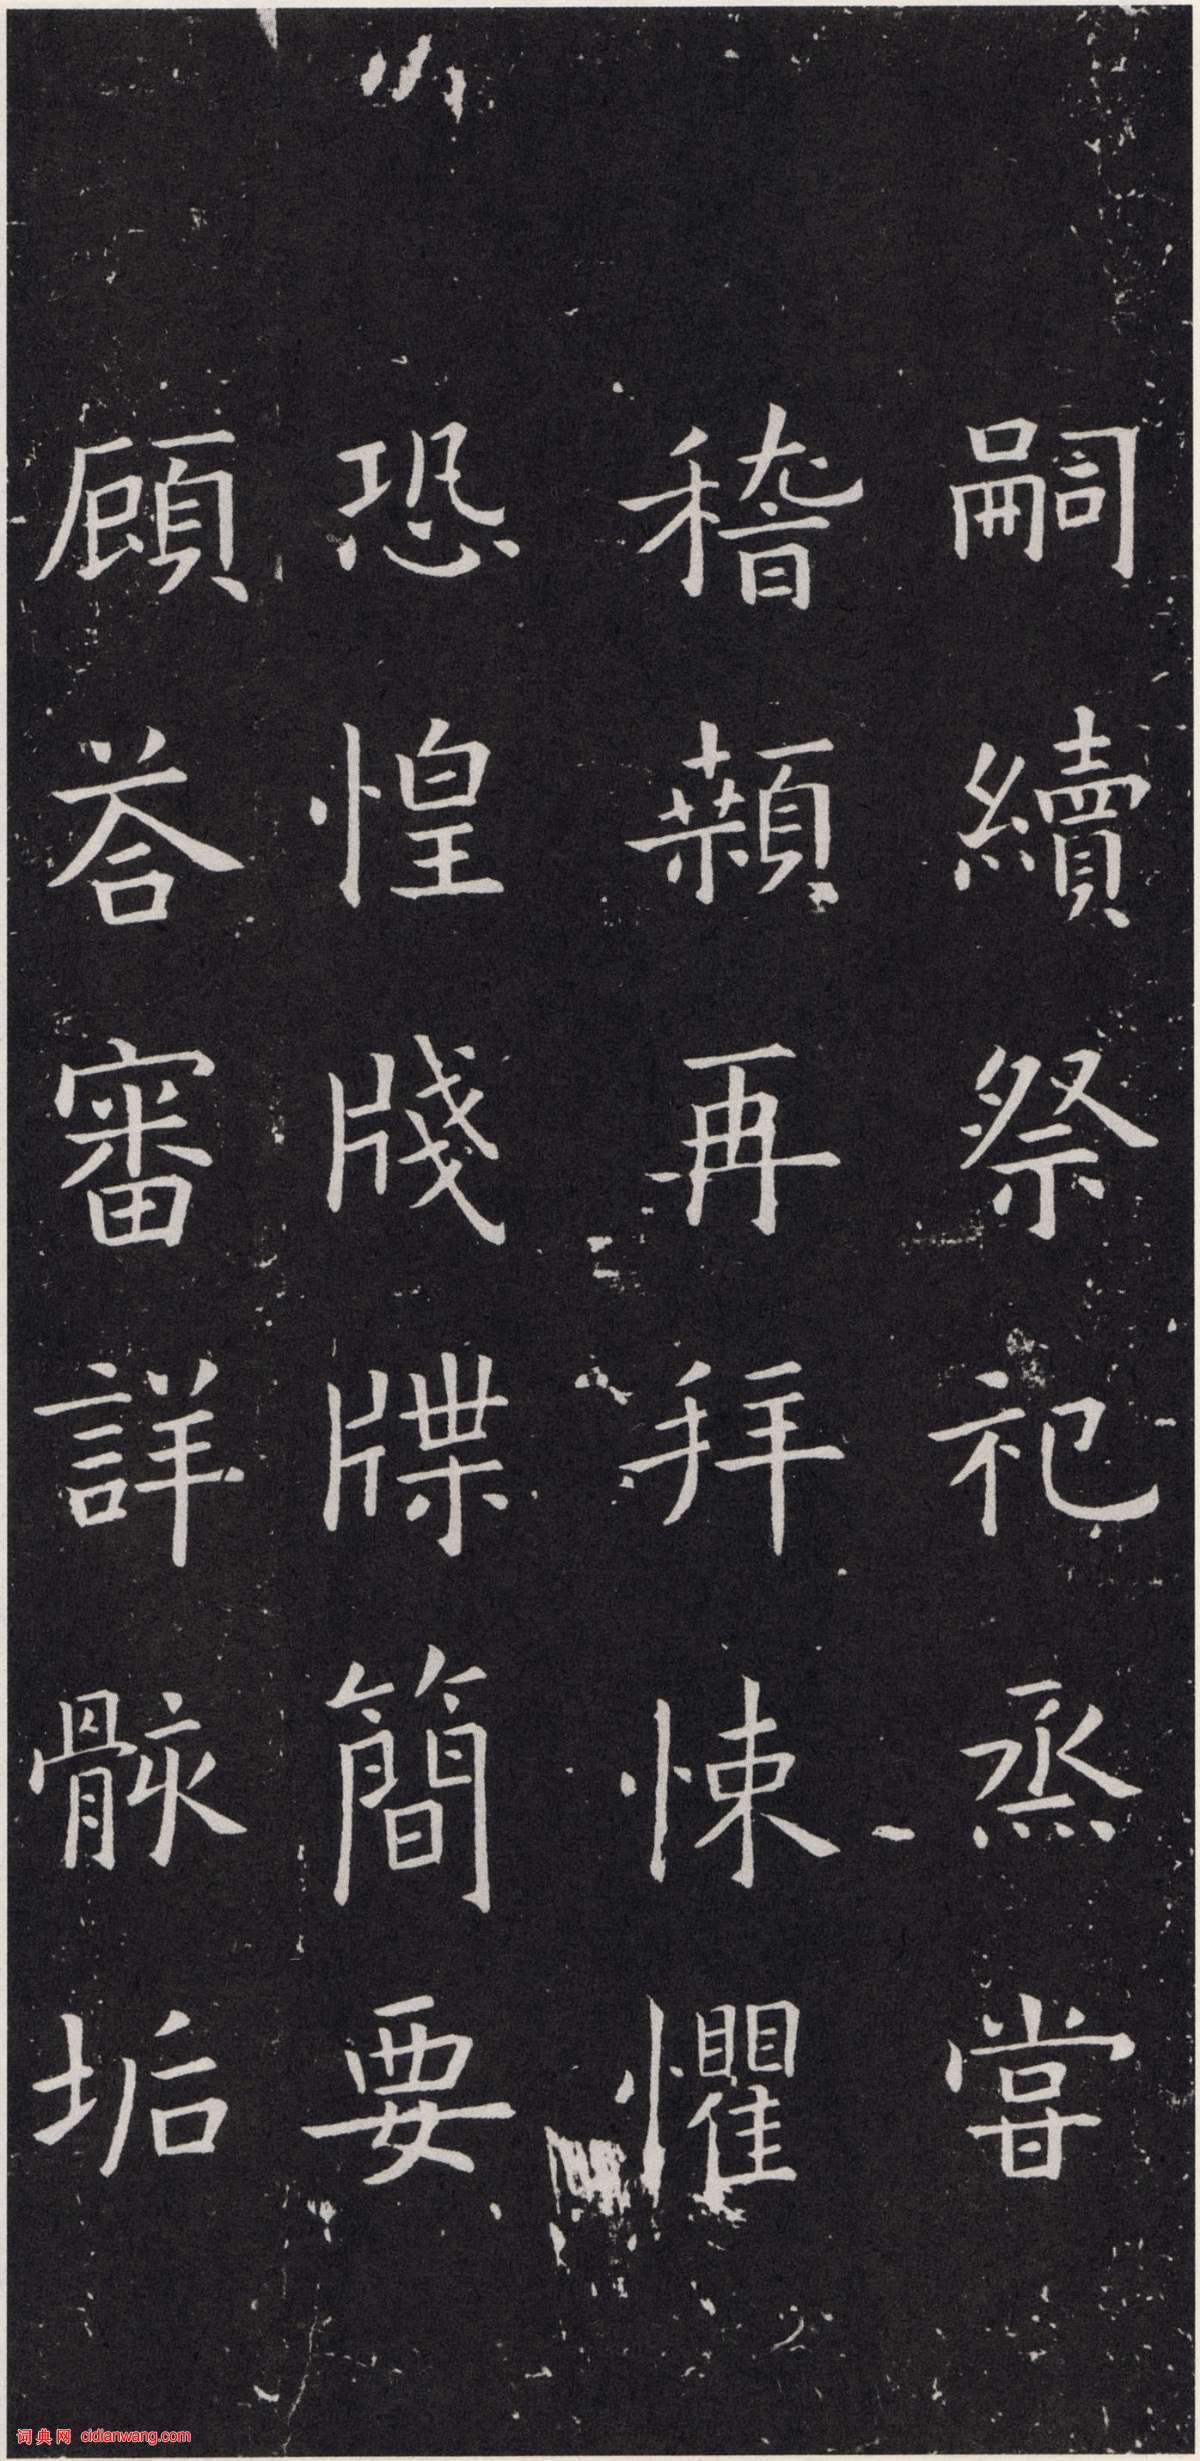 嗣續祭祀烝甞
稽顙再拜悚懼
恐惶牋牒簡要
顧荅審詳骸垢
词典网 cidianwang.com